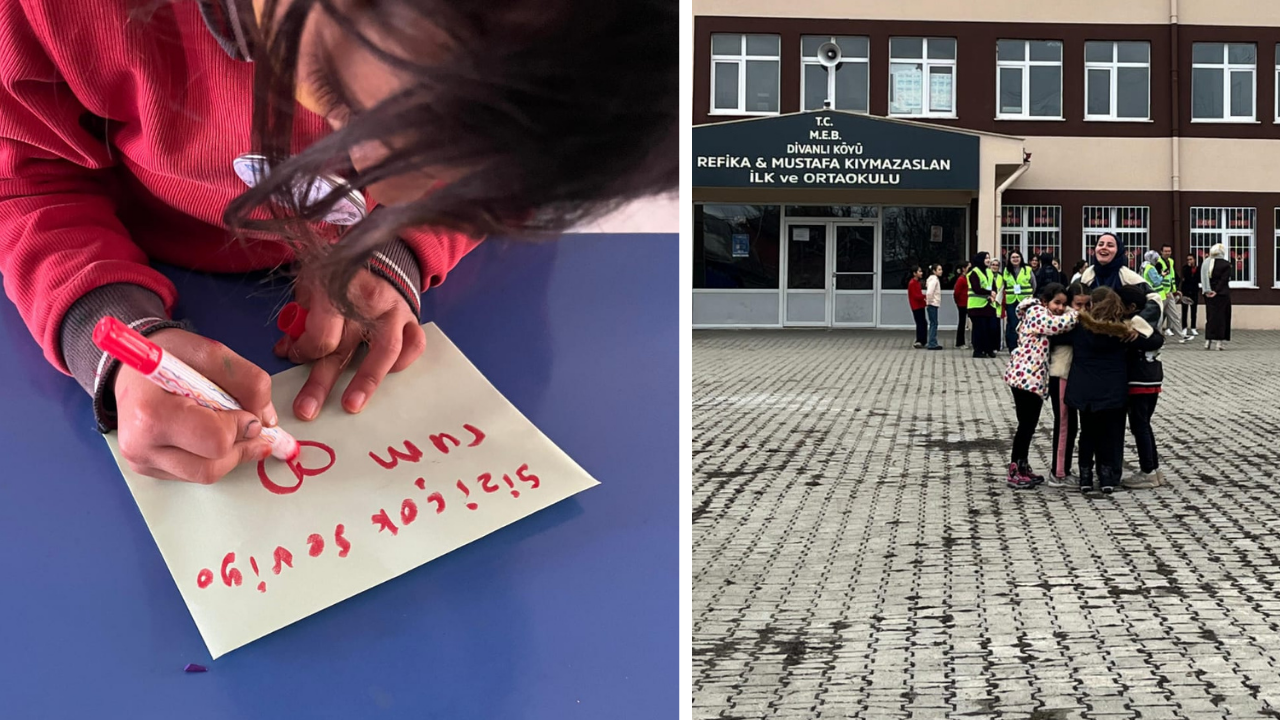 sizi çok seviyo
rum
T.C.
M.E.B.
DİVANLI KÖYÜ
REFİKA & MUSTAFA KIYMAZASLAN
İLK ve ORTAOKULU